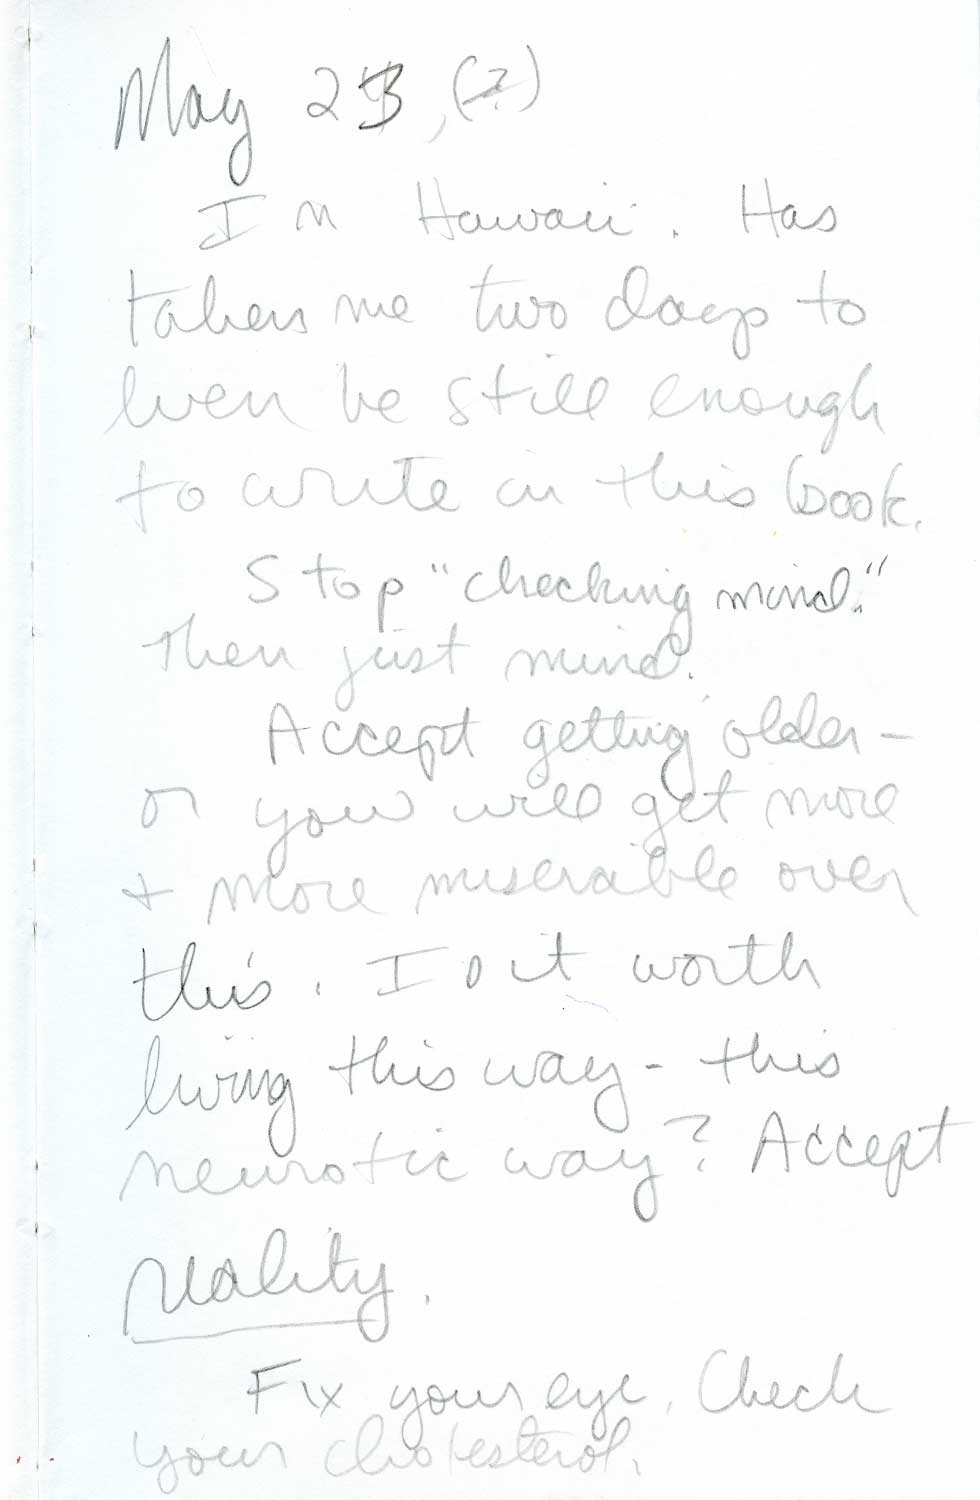 May 23, (?)
In Hawaii. Has
taken me two days to
even be still enough
to write in this book.
Stop "checking mind."
Then just mind.
Accept getting older -
or you will get more
+ more miserable over
this. Is it worth
living this way - this
neurotic way? Accept
reality.
Fix your eye. Check
your cholesterol.